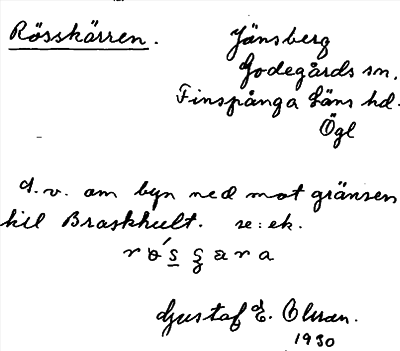 Rösskärren. Jänsberg
Godegårds sn.
Finspånga läns hd.
Ögl
d.v. om byn ned mot gränsen
till Braskhult. se: ek.
Gustaf E. Olsson.
1930